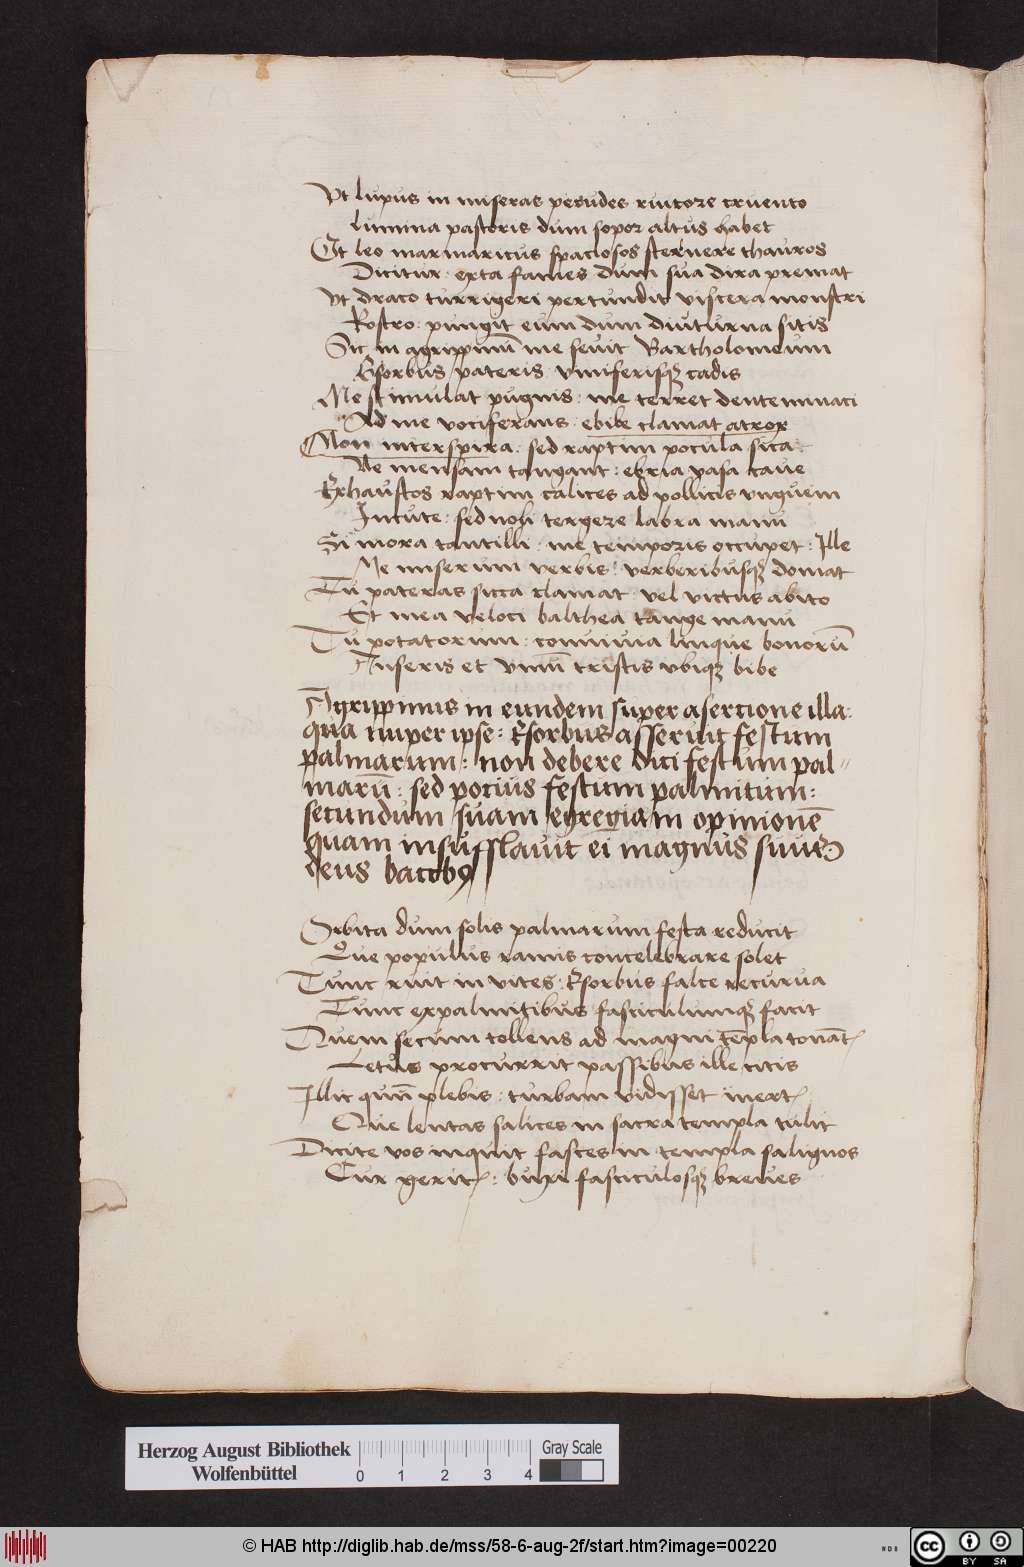 Vt lupus in miseras pecudes rictore cruento
Lumina pastoris dum sopor altus habet
Et leo marmaricus spaciosos sternere thauros
Dicitur : exta fames dum sua dira premat
Vt draco turrigeri pertundit viscera monstri
Rostro : pungit eum dum diuturna sitis
Sic in agrippinū me seuit Bartholomeum
Esorbus pateris vmiferisqꝫ cadis
Me stimulat pugnis : me terret dente minaci
Ad me vociferans : ebibe clamat atrox
Non interspira : sed raptim pocula sicca :
Ne mensam tangant : ebria vasa caue
Exhaustos raptim calices ad pollicis vnguem
Incute : sed noli tergere labra manu
Si mora tantilli : me temporis occupet : Ille
Me miserum verbis : verberibusqꝫ domat
Tu pateras sicca clamat : vel victus abito
Et mea veloci balthea tange manu
Tu potatorum : conuiuia linque bonorū
Anseris et vinū tristis vbiqꝫ bibe
Agrippinus in eundem super asercione illa :
qua nuper ipse : Esorbus asseruit festum
palmarum : non debere dici festum pal⸗
marū : sed pocius festum palmitum :
secundum suam egregiam opinionē
quam insufflauit ei magnus suus
deus bacchꝰ
Orbita dum solis palmarum festa reducit
Que populus ramis concelebrare solet
Tunc ruit in vites : Esorbus falce recurua
Tunc ex palmitibus fasciculumqꝫ facit
Quem secum tollens ad magni tēpla tonāt
Letus procurrit passibus ille citis
Illic quū plebis : turbam vidisset inert
Que lentas salices in sacra templa tulit
Dicite vos inquit fasces in templa salignos
Cur gerit : buxi fasciculosqꝫ breues
Herzog August Bibliothek
Wolfenbüttel
0 1 2 3 4
Gray Scale
© HAB http://diglib.hab.de/mss/58-6-aug-2f/start.htm?image=00220
cc BY SA